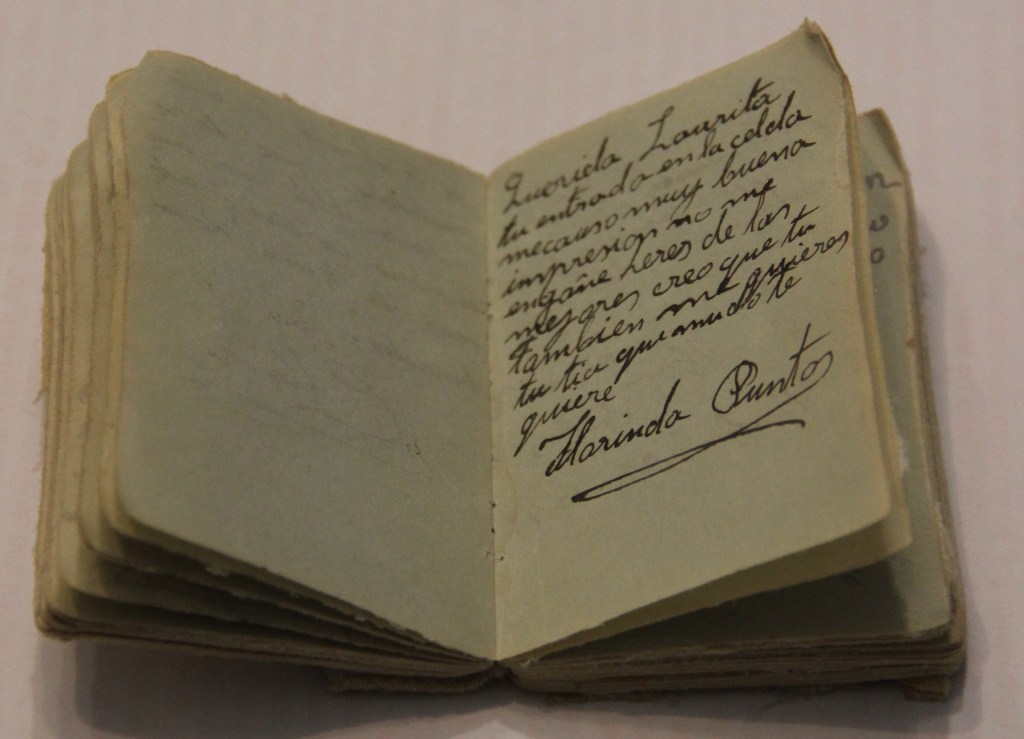 Querida Laurita
tu entrada en la celda
mecauso muy buena
impresion no me
engañe heres de las
mejores creo que tu
tambien me quieres
tu tia qui mucho te
quiere
Florinda Puntos